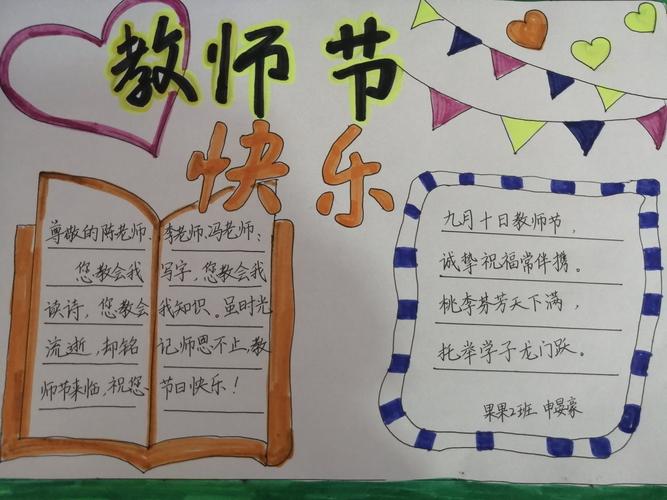 教师节
快乐
尊敬的陈老师、李老师、冯老师：
您教会我写字，您教会我
读诗，您教会我知识。虽时光
流逝，却铭记师恩不止，教
师节来临，祝您、节日快乐！
九月十日教师节，
诚挚祝福常伴携。
桃李芬芳天下满，
托举学子龙门跃。
果果2班 申晏豪